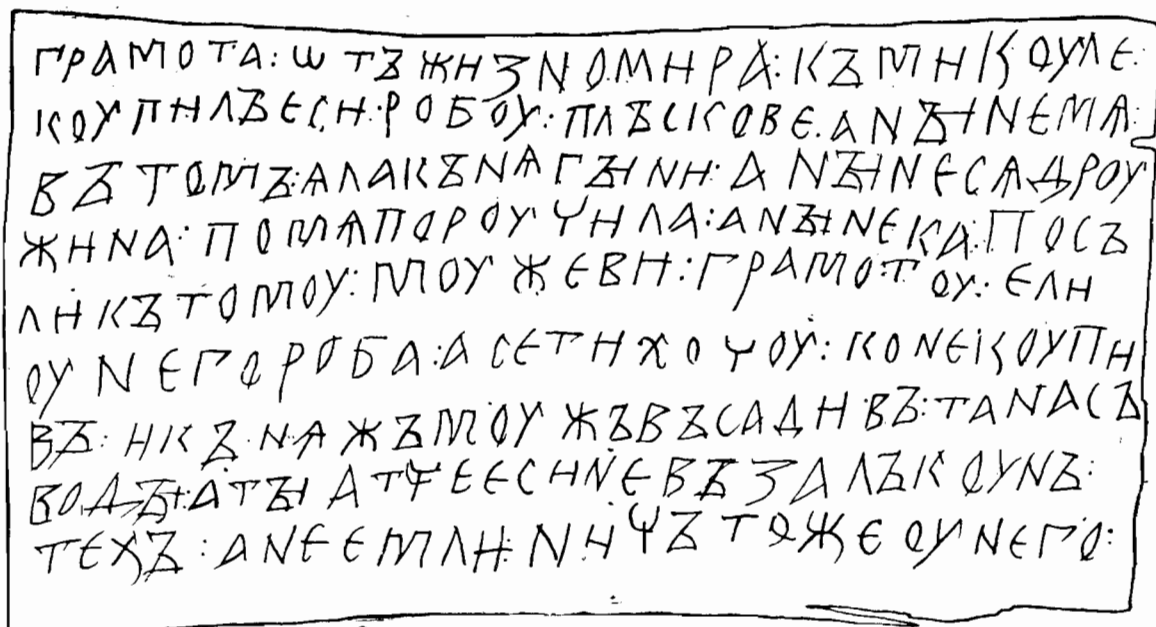 ГРАМОТА:ѠТЪЖИЗНОМИРА:КЪМИКОУЛЕ:
КОУПИЛЪЕСИ:РОБОУ:ПЛЪСКОВЕ:АНЪІНЕМѦ:
ВЪТОМЪ:АЛАКЪНѦГЪІНИ:АНЪІНЕСѦДРОУ
ЖИНА:ПОМѦПОРОУЧИЛА:АНЪІНЕКА:ПОСЪ
ЛИКЪТОМОУ:МОУЖЕВИ:ГРАМОТОУ:ЕЛИ
ОУНЕГОРОБА:АСЕТИХОЧОУ:КОНЕКОУПИ
ВЪ:ИКЪ·НѦЖЪМОУЖЪВЪСАДИВЪ:ТАНАСЪ
ВОДЪІ:АТЪІАТЧЕЕСИНЕВЪЗАЛЪКОУНЪ:
ТЕХЪ:АНЕЕМЛИ:НИЧЪТОЖЕОУНЕГО: